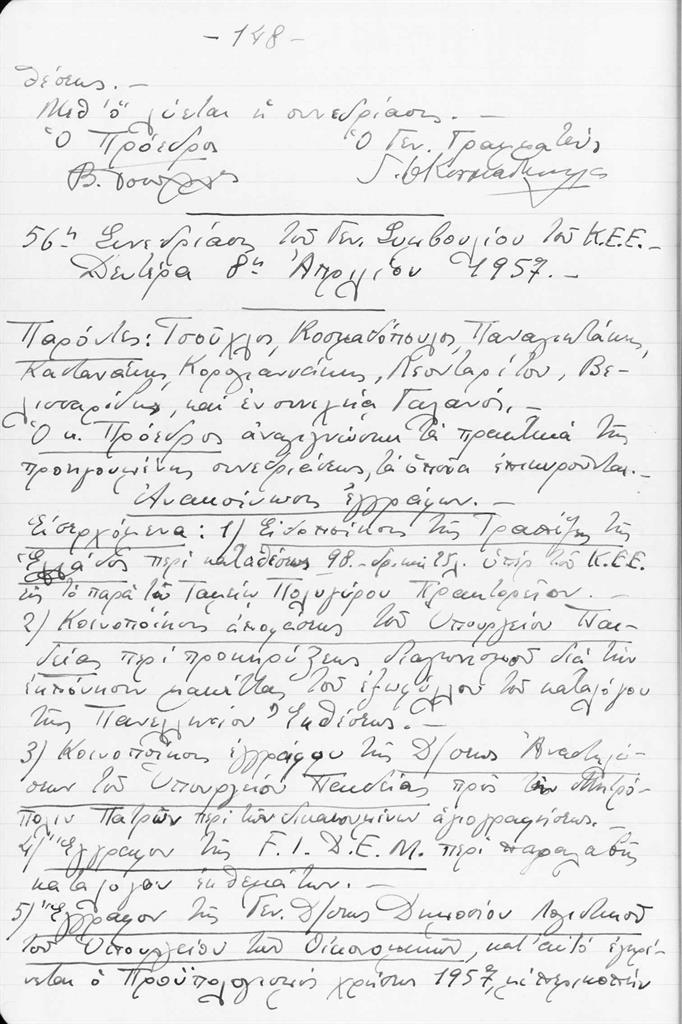 - 148 -
θέσεως. -
Μεθ' ὅ λύεται ἡ συνεδρίασις. -
Ὁ Πρόεδρος Ὁ Γεν. Γραμματεύς
Β. Τσούχλος
56η Συνεδρίασις τοῦ Γεν. Συμβουλίου τοῦ Κ.Ε.Ε. -
Δευτέρα 8η Ἀπριλίου 1957. -
Παρόντες: Τσοῦχλος, Κοσμαδόπουλος, Παναγιωτάκης,
Καστανάκης, Κορογιαννάκης, Λεονταρίτου, Βε-
λισσαρίδης, καί ἐν συνεχείᾳ Γαλανός. -
Ὁ κ. Πρόεδρος ἀναγιγνώσκει τά πρακτικά τῆς
προηγουμένης συνεδριάσεως, τά ὁποῖα ἐπικυροῦνται. -
Ἀνακοίνωσις ἐγγράφων. -
Εἰσερχόμενα: 1) Εἰδοποίησις τῆς Τραπέζης τῆς
Ἑλλάδος περί καταθέσεως 98. - δρ. ὑπέρ τοῦ Κ.Ε.Ε.
εἰς τό παρά τῷ Ταμείῳ Πολυγύρου Πρακτορεῖον. -
2) Κοινοποίησις ἀποφάσεως τοῦ Ὑπουργείου Παι-
δείας περί προκηρύξεως διαγωνισμοῦ διά τήν
ἐκπόνησιν μακέττας τοῦ ἐξωφύλλου τοῦ καταλόγου
τῆς Πανελληνίου Ἐκθέσεως. -
3) Κοινοποίησις ἐγγράφου τῆς Δ/σεως Ἀναστηλώ-
σεων τοῦ Ὑπουργείου Παιδείας πρός τήν Μητρό-
πολιν Πατρῶν περί τῶν δικαιουμένων ἁγιογραφήσεως. -
4) Ἔγγραφον τῆς F. I. D. E. M. περί παραλαβῆς
καταλόγου ἐκθεμάτων. -
5) Ἔγγραφον τῆς Γεν. Δ/σεως Δημοσίου Λογιστικοῦ
τοῦ Ὑπουργείου τῶν Οἰκονομικῶν, κατ' αὐτό ἐγκρί-
νεται ὁ Προϋπολογισμός χρήσεως 1957, μέ περικοπήν